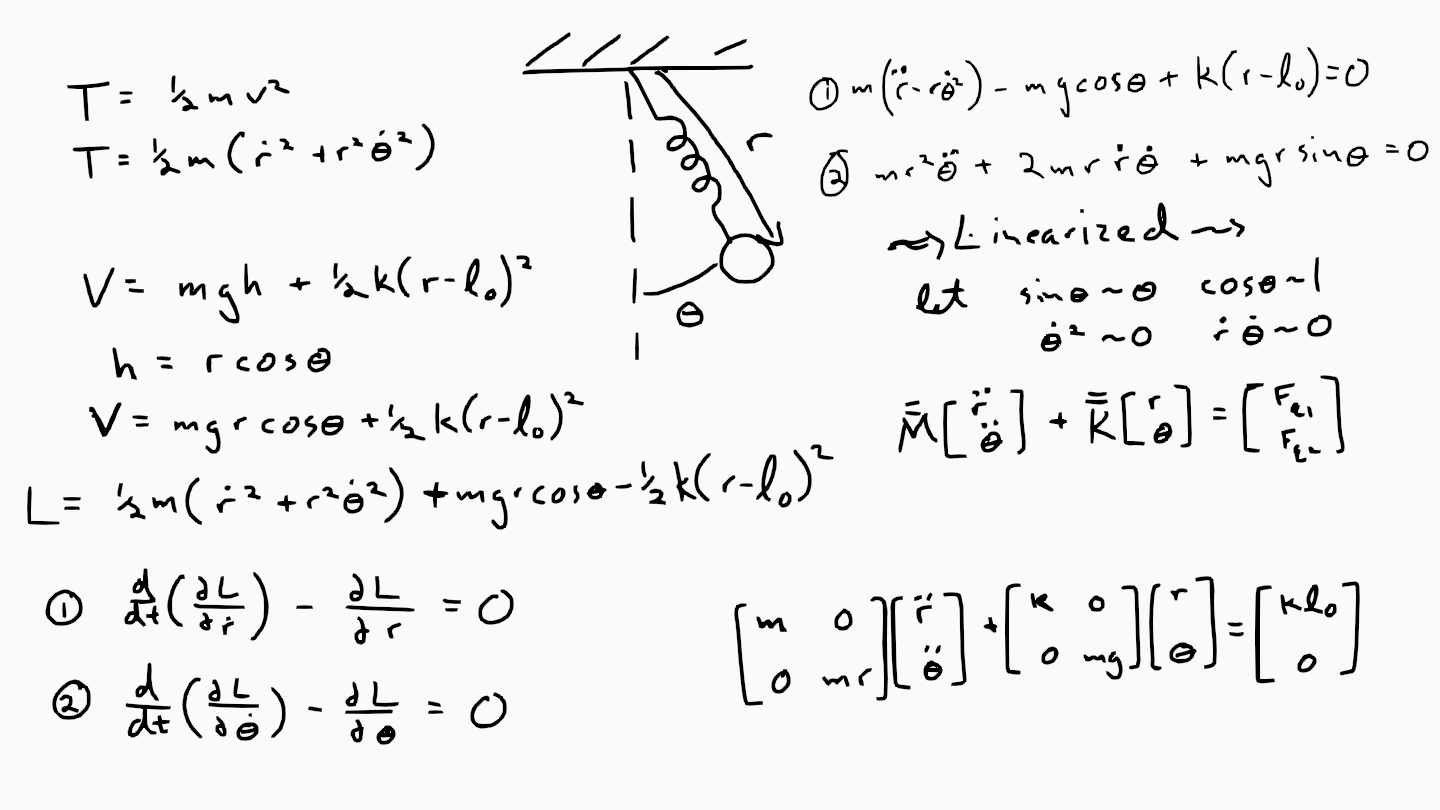 T = ½ m v²
T = ½ m ( ṙ² + r² θ̇² )
V = mgh + ½ k( r - l₀ )²
h = r cosθ
V = mg r cosθ + ½ k(r - l₀)²
L = ½ m ( ṙ² + r² θ̇² ) + mgr cosθ - ½ k( r - l₀ )²
① d/dt ( ∂L/∂ṙ ) - ∂L/∂r = 0
② d/dt ( ∂L/∂θ̇ ) - ∂L/∂θ = 0
r
θ
① m( r̈ - rθ̇² ) - mg cosθ + k( r - l₀ ) = 0
② mr² θ̈ + 2mr ṙ θ̇ + mgr sinθ = 0
⇝ Linearized ⇝
let sinθ ~ θ cosθ ~ 1
θ̇² ~ 0 ṙ θ̇ ~ 0
M̿ [ r̈ ; θ̈ ] + K̿ [ r ; θ ] = [ F_q₁ ; F_q₂ ]
[ m 0 ; 0 mr ] [ r̈ ; θ̈ ] + [ k 0 ; 0 mg ] [ r ; θ ] = [ kl₀ ; 0 ]